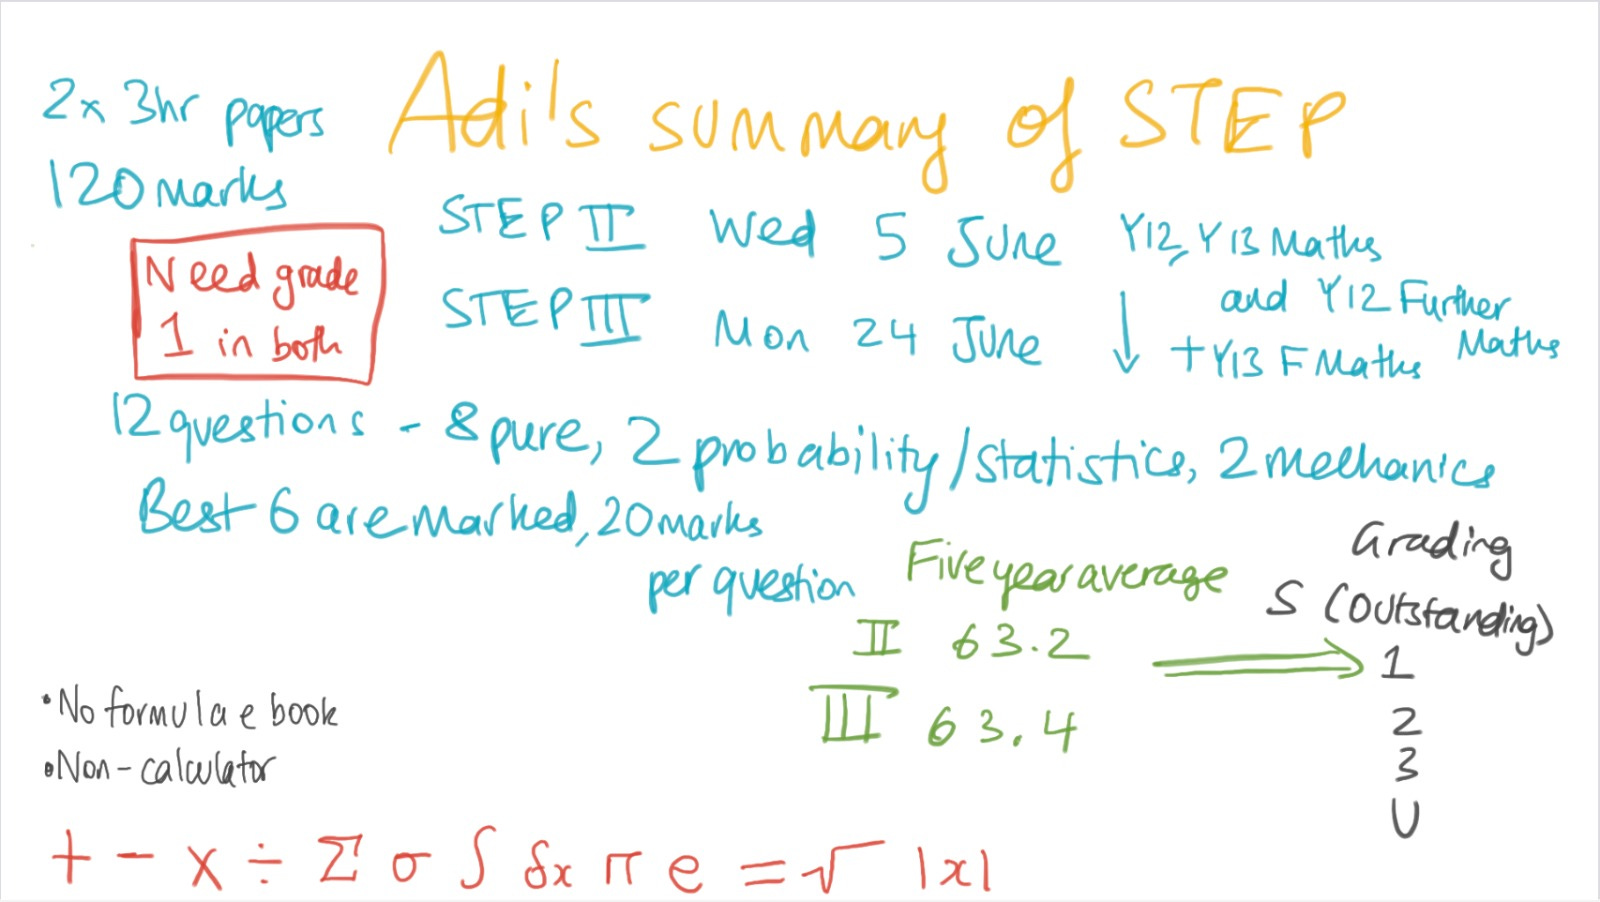 Adi's summary of STEP
2x 3hr papers
120 marks
Need grade
1 in both
STEP II Wed 5 June Y12, Y13 Maths
and Y12 Further
Maths
STEP III Mon 24 June ↓ + Y13 F Maths
12 questions - 8 pure, 2 probability/statistics, 2 mechanics
Best 6 are marked, 20 marks
per question
Five year average
II 63.2 ⇒
III 63.4
Grading
S (Outstanding)
1
2
3
U
• No formulae book
• Non-calculator
+ - x ÷ Σ σ ∫ δx π e = √ |x|